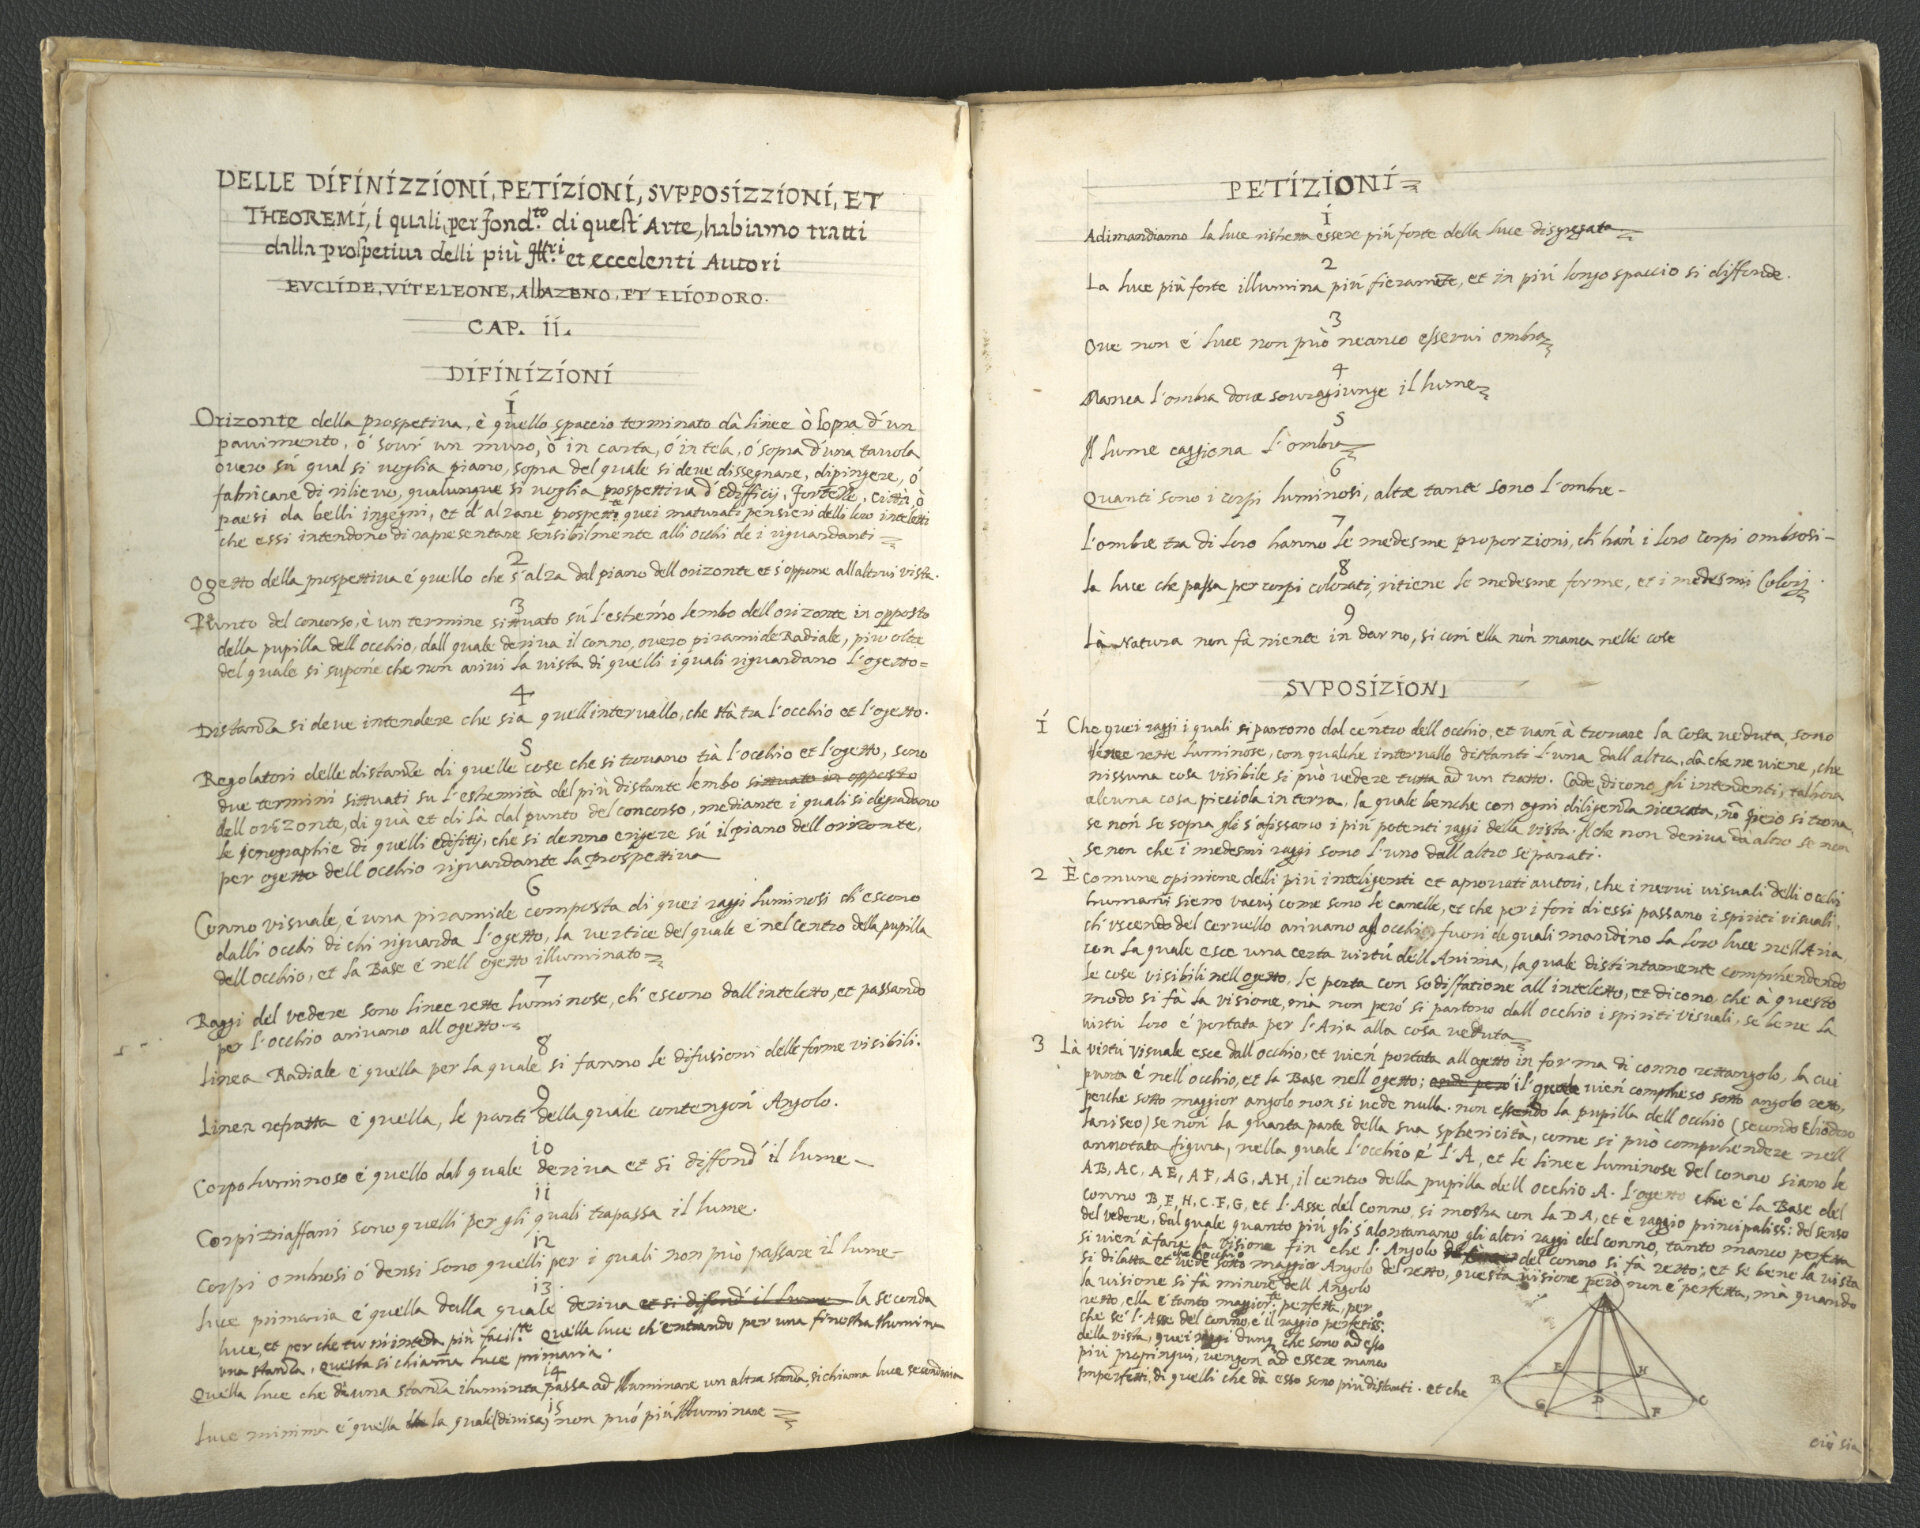 DELLE DIFINIZZIONI, PETIZIONI, SVPPOSIZZIONI, ET
THEOREMI, i quali, per fond.to di quest'Arte, habiamo tratti
dalla prospetiua delli più et eccelenti Autori
EVCLIDE, VITELEONE, AlhAZENO, ET ELIODORO.
CAP. II.
DIFINIZIONI
1
Orizonte della prospetiua, è quello spaccio terminato dà linee ò sopra d'un
pauimento, ó sour' un muro, ò in carta, ó in tela, ó sopra d'una tauola
ouero sú qual si uoglia piano, sopra del quale si deue dissegnare, dipingere, ó
fabricare di rilieuo, qualunque si uoglia prospettiua d'Edifficij, Fortezze, città, ò
paesi da belli ingegni, et d'alzare quei maturati pensieri delli loro inteletti
che essi intendono di rapresentare sensibilmente alli occhi de i riguardanti
2
Ogetto della prospettiua é quello che s'alza dal piano dell orizonte et s'oppone all altrui vista.
3
Punto del concorso, è un termine sittuato sú l'estremo lembo dell orizonte in opposto
della pupilla dell occhio, dall quale deriua il conno, ouero piramide Radiale, piu oltre
del quale si supone che non ariui la uista di quelli i quali riguardano l'ogetto
4
Distanza si deue intendere che sia quell'interuallo, che stà tra l'occhio et l'ogetto.
5
Regolatori delle distanze di quelle cose che si trouano trà l'occhio et l'ogetto, sono
due termini sittuati su l'estremità del più distante lembo sittuato in opposto
dell orizonte, di qua et di là dal punto del concorso, mediante i quali si degradano
le icnographie di quelli edifitij, che si denno erigere sú il piano dell orizonte,
per ogetto dell occhio riguardante la prospettiua
6
Conno visuale, é una piramide composta di quei raggi luminosi ch'escono
dalli occhi di chi riguarda l'ogetto, la vertice del quale é nel centro della pupilla
dell occhio, et la Base é nell ogetto illuminato
7
Raggi del vedere sono linee rette luminose, ch'escono dall'inteletto, et passando
per l'occhio ariuano all ogetto
8
Linea Radiale é quella per la quale si fanno le difusioni delle forme visibili.
9
Linea refratta é quella, le parti della quale contengon' Angolo.
10
Corpo luminoso é quello dal quale deriua et si diffond' il lume
11
Corpi Diaffani sono quelli per gli quali trapassa il lume.
12
Corpi ombrosi ó densi sono quelli per i quali non può passare il lume
13
Luce primaria é quella dalla quale deriua et si difond' il lume la seconda
luce, et perche tu m'intenda più facil.te Quella luce ch'entrando per una finestra illumina
una stanza, questa si chiama luce primaria.
14
Quella luce che da una stanza iluminta passa ad Illuminare un altra stanza, si chiama luce secondaria
15
Luce minima é quella la quale (diuisa) non puó più Illuminare
PETIZIONI
1
Adimandiamo la luce ristretta essere più forte della luce disgregata
2
La luce più forte illumina più fieramte, et in più longo spaccio si diffonde.
3
Oue non é luce non può neanco esserui ombra
4
Manca l'ombra doue souragiunge il lume
5
Il lume caggiona l'ombra
6
Quanti sono i corpi luminosi, altre tante sono l'ombre
7
L'ombre tra di loro hanno le medesme proporzioni, ch'han' i loro corpi ombrosi
8
La luce che passa per corpi colorati, ritiene le medesme forme, et i medesmi Colorj.
9
Là Natura non fà niente in darno, si com' ella non manca nelle cose
SVPOSIZIONI
1 Che quei raggi i quali si partono dal centro dell occhio, et uan' à trouare la cosa veduta, sono
linee rette luminose, con qualche interuallo distanti l'una dall'altra, dà che ne uiene, che
nissuna cosa visibile si puó vedere tutta ad un tratto. Cade, dicono gli intendenti, talhora
alcuna cosa picciola in terra, la quale benche con ogni diligenza ricercata, nõ però si troua,
se non se sopra gli s'afissano i piú potenti raggi della vista. Il che non deriua dà altro se non
se non che i medesmi raggi sono l'uno dall'altro separati.
2 È comune opinione delli più inteligenti et aprouati autori, che i nerui uisuali delli occhi
humani sieno vacui come sono le canelle, et che per i fori di essi passano i spiriti visuali,
ch'vscendo del ceruello ariuano agl occhi fuori de quali mandino la loro luce nell Aria,
con la quale esce una certa virtú dell'Anima, la quale distintamente comprhendendo
le cose visibili nell ogetto, le porta con sodiffatione all'inteletto, et dicono, che à questo
modo si fà la visione, mà non peró si partono dall occhio i spiriti visuali, se bene la
virtú loro é portata per l'Aria alla cosa veduta
3 Là virtú visuale esce dall'occhio, et uien' portata all ogetto in forma di conno rettangolo, la cui
punta é nell'occhio, et la Base nell ogetto; il quale vien' compreso sotto angolo retto,
perche sotto maggior angolo non si uede nulla. non essendo la pupilla dell occhio (secondo Eliodoro
lariseo) se non la quarta parte della sua sphericità, come si può comprhendere nell
annotata figura, nella quale l'occhio é l'A, et le linee luminose del conno siano le
AB, AC, AE, AF, AG, AH, il centro della pupilla dell occhio A. l'ogetto che é la Base del
conno B, E, H, C, F, G, et l'Asse del conno, si mostra con la DA, et e raggio principalissº: del senso
del vedere, dal quale quanto più gli s'alontanano gli altri raggi del conno, tanto manco perfetta
si uien' à fare la visione fin che l'Angolo del conno si fà retto; et se bene la uista
si dilatta et che l'occhio uede sotto maggior Angolo del retto, questa uisione però non e' perfetta, mà quando
la uisione si fà minore dell Angolo
retto, ella é tanto maggior.te perfetta, per
che se' l'Asse del conno, e il raggio perfetissº:
della uista, quei raggi dunq che sono ad esso
piu propinqui, uengon ad essere manco
imperfetti, di quelli che dà esso sono più distanti. et che
B E H C G D F
ciò sia